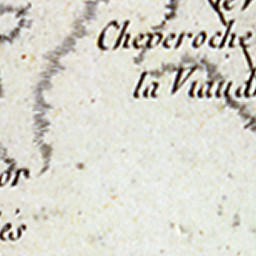 Cheveroche
la Viaud
or
és